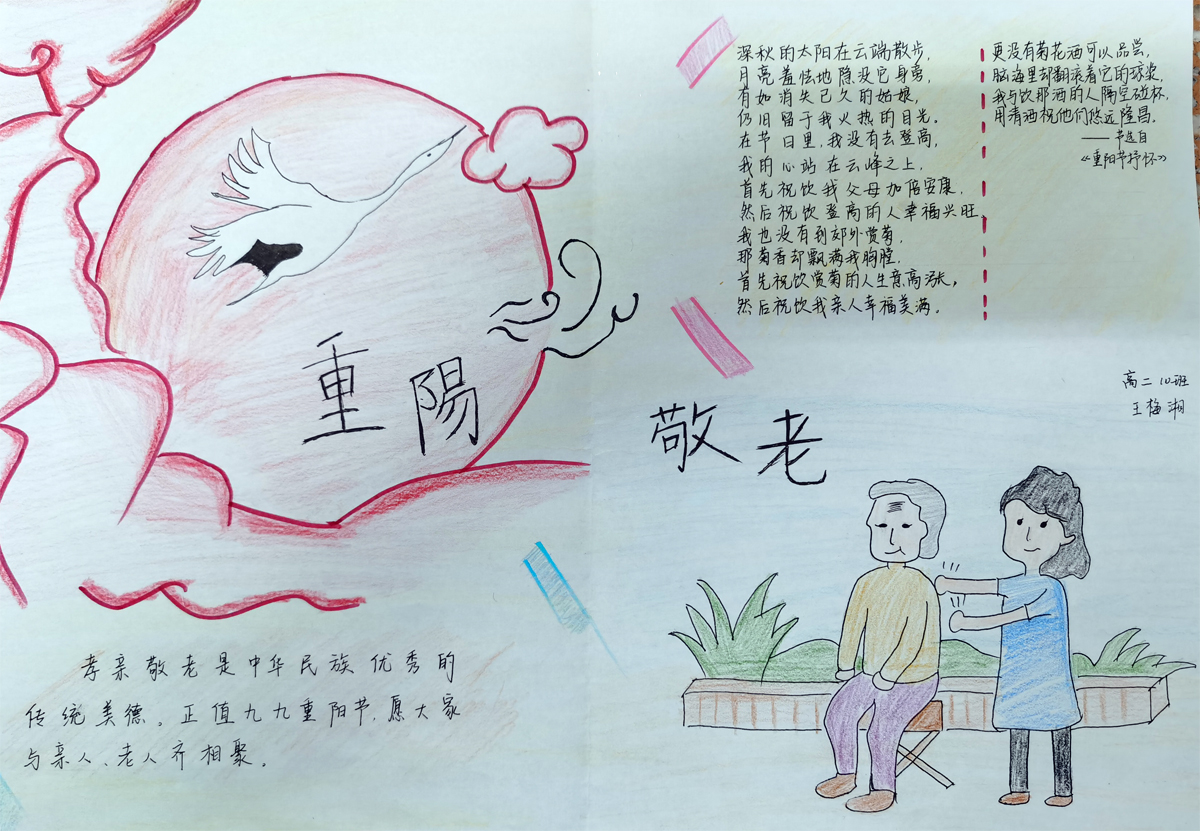 重陽
孝亲敬老是中华民族优秀的
传统美德。正值九九重阳节,愿大家
与亲人、老人齐相聚。
深秋的太阳在云端散步,
月亮羞怯地隐没它身旁,
有如消失已久的姑娘,
仍旧留于我火热的目光。
在节日里,我没有去登高,
我的心站在云峰之上,
首先祝饮我父母加倍安康,
然后祝饮登高的人幸福兴旺
我也没有到郊外赏菊,
那菊香却飘满我胸膛,
首先祝饮赏菊的人生意高涨,
然后祝饮我亲人幸福美满。
更没有菊花酒可以品尝,
脑海里却翻滚着它的琼浆,
我与饮那酒的人隔空碰杯,
用清酒祝他们悠远隆昌。
——节选自
《重阳节抒怀》
高二10班
王梅湘
敬老